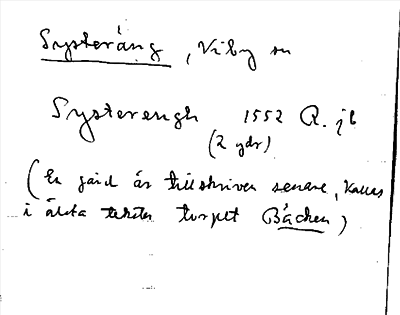 Systeräng, Viby sn
Systerengh 1552 R. jb
(2 gdr)
(En gård är tillskriven senare, kallas
i äldta texter torpet Bäcken)